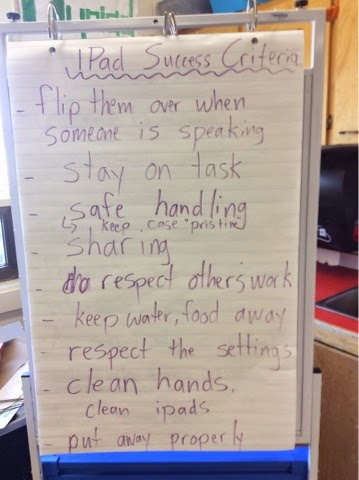 IPad Success Criteria
- flip them over when
someone is speaking
- stay on task
- safe handling
↳ keep case "pristine"
- sharing
- respect others' work
- keep water, food away
- respect the settings
- clean hands.
clean ipads
- put away properly